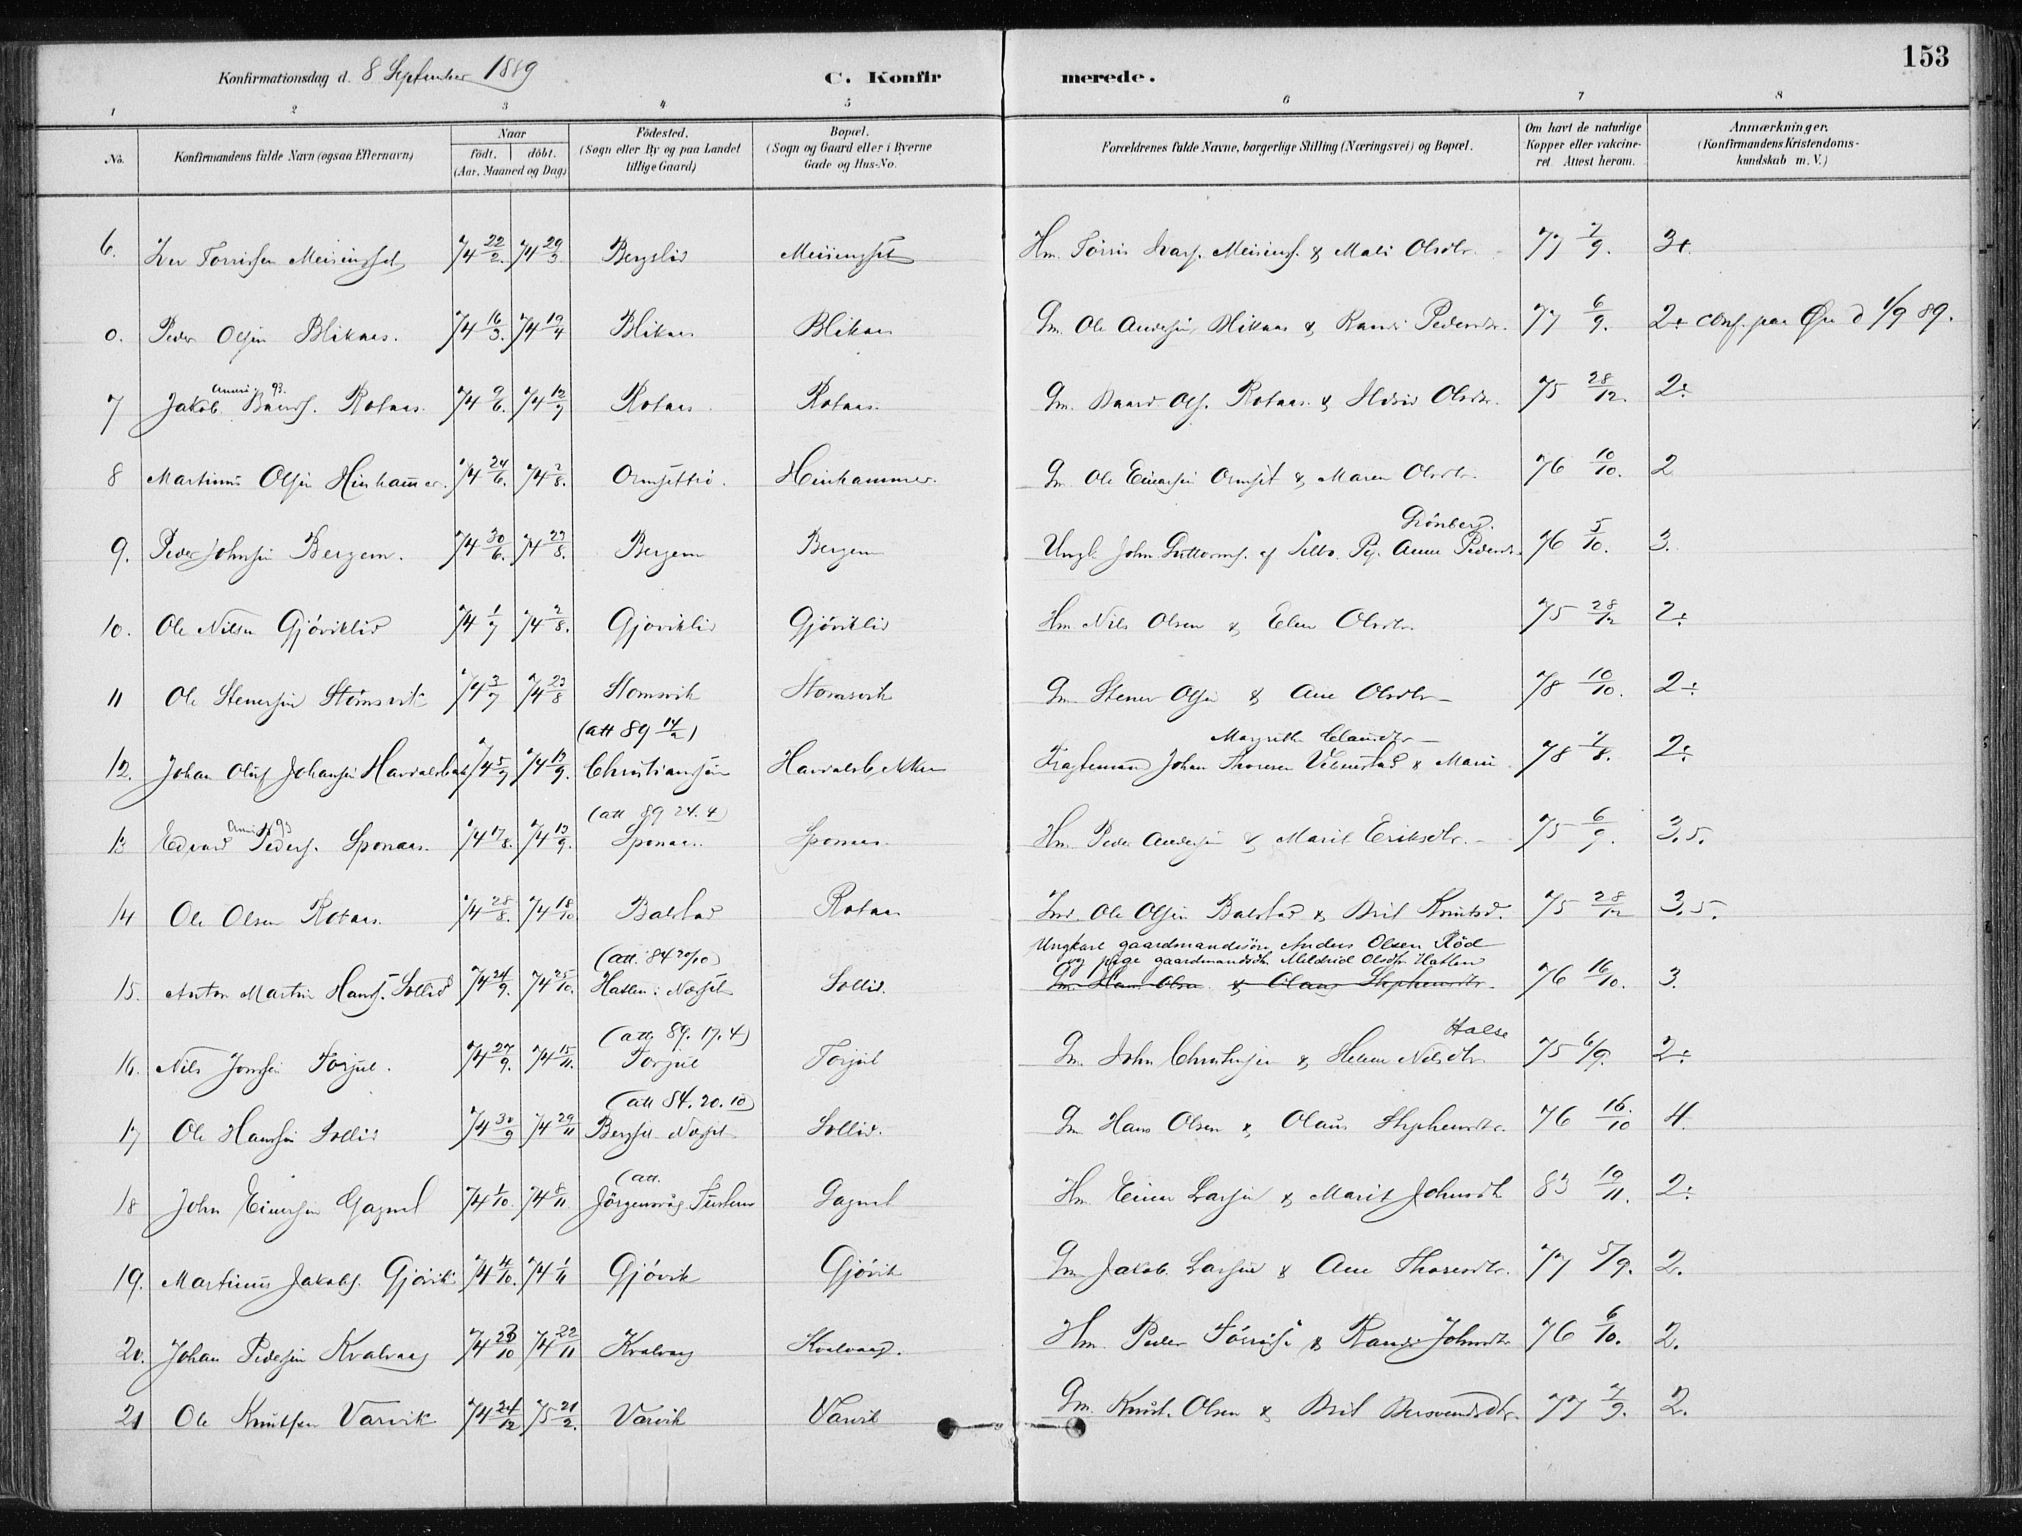 153
Konfirmationsdag d. 8 September 1889
C. Konfirmerede.
1 2 3 4 5 6 7 8
No. Konfirmandens fulde Navn (ogsaa Efternavn) Naar födt. döbt. (Aar, Maaned og Dag) Födested. (Sogn eller By og paa Landet tillige Gaard) Bopæl. (Sogn og Gaard eller i Byerne Gade og Hus-No. Forældrenes fulde Navne, borgerlige Stilling (Næringsvei) og Bopæl. Om havt de naturlige Kopper eller vakcineret. Attest herom. Anmærkninger. (Konfirmandens Kristendomskundskab m. V.)
6. Iver Torrissen Meisingset 74 22/2. 74 29/3 Bergslid Meisingset Hm. Törris Ivars. Meisings. & Mali Olsdtr. 77 7/9. 3+.
0. Peder Olsen Blikaas. 74 16/3. 74 19/4 Blikaas Blikaas Gm. Ole Andersen Blikaas & Randi Pedersdtr. 77 6/9. 2+ conf. paa Øre d 1/9 89.
7 Jakob Baards. Rotaas. 74 9/6. 74 12/7 Rotaas Rotaas. Gm. Baard Ols. Rotaas & Olsdtr. 75 28/12. 2÷
8 Martinus Olsen Heinhammer. 74 24/6. 74 2/8. Ormsettrö. Heinhammer. Gm Ole Einarsen Ormset & Maren Olsdtr. 76 10/10. 2
9. Peder Johnsen Bergem. 74 30/6. 74 23/8. Bergem Bergem Ungk. John Guttorms. af Selbo. Pig. Anne Pedersdtr. Grönberg. 76 5/10. 3.
10. Ole Nilsen Gjöviklid 74 1/7 74 2/8. Gjöviklid Gjöviklid Hm. Nils Olsen & Elen Olsdtr. 75 28/12 2÷
11 Ole Stenersen Stomsvik 74 3/7 74 23/8 Stomsvik Stomsvik Gm. Stener Olsen & Ane Olsdtr 78 10/10. 2÷
(att 89 14/2)
12. Johan Oluf Johansen Havdalsbak 74 5/9 74 19/9. Christiansund Havdalsbekken Johan Thoresen & Marie Margrethe 78 7/8. 2÷
(att 89 24.4)
13 Edvard Peders. Sponaas. 74 17/8. 74 13/9. Sponaas. Sponaas. Hm. Peder Andersen & Marit Eriksdtr. 75 6/9. 3.5.
14 Ole Olsen Rotaas. 74 28/8. 74 18/10 Balstad Rotaas Ind. Ole Olsen Balstad & Brit Knutsd. 75 28/12 3.5.
(att. 84 20/10) Ungkarl gaardmandssön Anders Olsen Röd
og pige gaardmandsdtr. Mildrid Olsdtr Hatlen
15. Anton Martin Hans. Sollid 74 24/9. 74 25/10. Hatlen i Nesset Sollid. Gm. Hans Olsen & Olaug Stephensdtr. 76 16/10. 3.
(att 89. 17.4)
16. Nils Jonsen Torjul. 74 27/9. 74 15/11. Torjul Torjul Gm. John Christensen & Helene Nilsdtr Halse 75 6/9. 2÷
(att 84. 20. 10)
17 Ole Hansen Sollid 74 30/9 74 29/11 Bergset Nesset Sollid. Gm Hans Olsen & Olaus Stephensdtr. 76 16/10 4.
(att.
18 John Einersen Gagnat 74 1/10. 74 8/11 Jörgensvåg Tustern Gagnat Hm. Einer Larsen & Marit Johnsdtr 83 19/11. 2÷
19. Martinus Jakobs. Gjövik 74 4/10. 74 1/11 Gjövik Gjövik Gm. Jakob. Larsen & Ane Thoresdtr. 77 5/9. 2.
20. Johan Pedersen Kvalvaag 74 23/10 74 22/11 Kvalvaag Kvalvaag. Hm. Peder Törris & Randi Johnsdtr 76 6/10. 2.
21 Ole Knutsen Varvik 74 24/12 75 21/2. Varvik Varvik Gm. Knut. Olsen & Brit Bersvendsdtr. 77 7/9. 2.